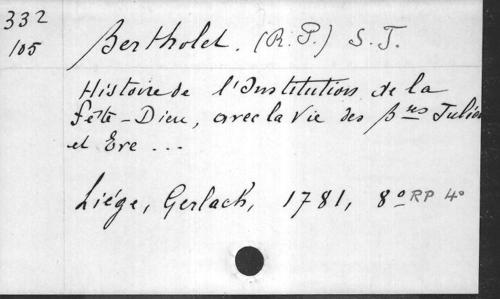 332
105
Bertholet. (R. P.) S. J.
Histoire de l'Institution de la
fête-Dieu, avec la Vie des Bses Julie
et Eve ...
Liége, Gerlach, 1781, 8º RP 4º